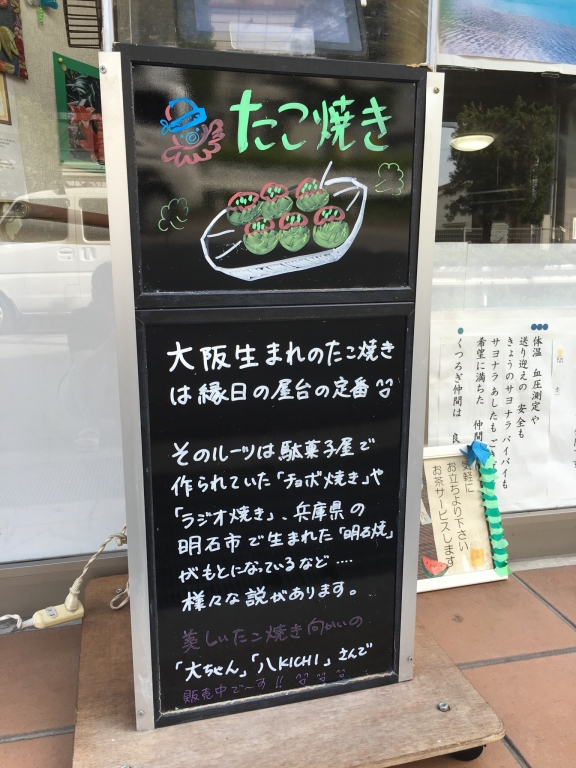 たこ焼き
大阪生まれのたこ焼き
は縁日の屋台の定番
そのルーツは駄菓子屋で
作られていた「チョボ焼き」や
「ラジオ焼き」、兵庫県の
明石市で生まれた「明石焼」
がもとになっているなど‥‥
様々な説があります。
美しいたこ焼き向かいの
「大ちゃん」「八KICHI」さんで
販売中で〜す!!
体温 血圧測定や
送り迎えの 安全も
きょうのサヨナラ バイバイも
サヨナラ あしたも
希望に満ちた 仲間
くつろぎ仲間は 良
気軽に
お立ちより下さい
お茶サービスします